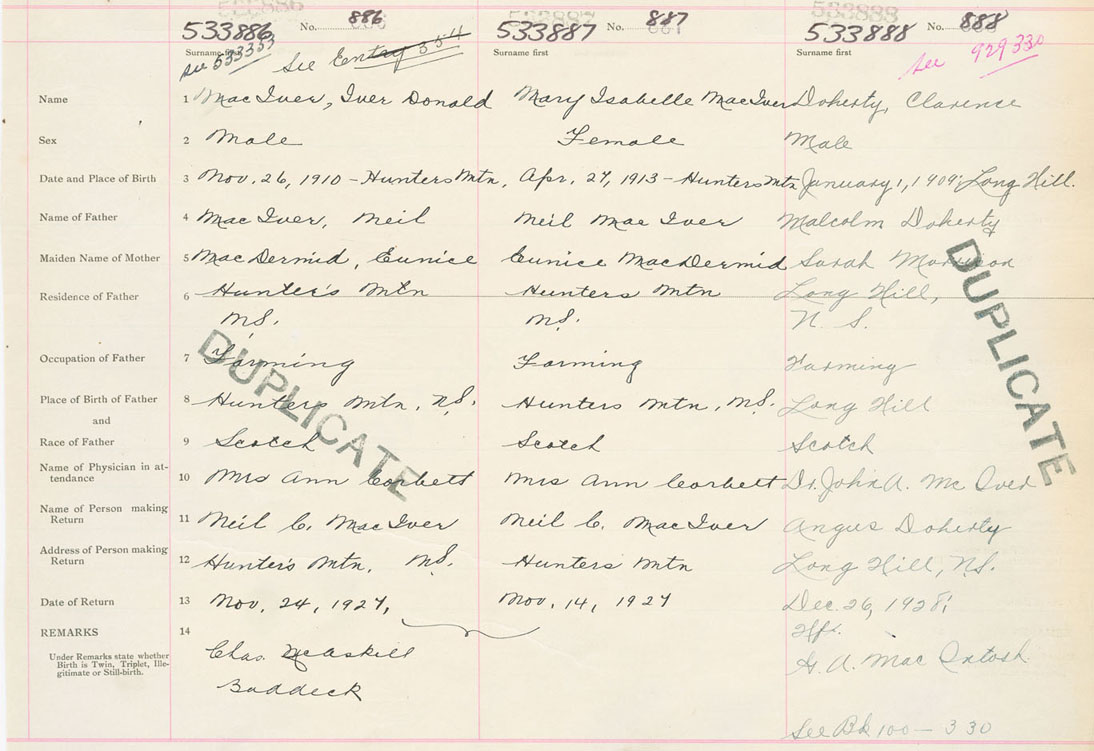 533886 No. 886
533887 No. 887
533888 No. 888
Surname first
Surname first
Surname first
see 533333
See Entry 354
See 929330
Name 1 MacIver, Iver Donald Mary Isabelle MacIver Doherty, Clarence
Sex 2 Male Female Male
Date and Place of Birth 3 Nov. 26, 1910 - Hunters Mtn, Apr. 27, 1913 - Hunters Mtn January 1, 1909, Long Hill.
Name of Father 4 MacIver, Neil Neil MacIver Malcolm Doherty
Maiden Name of Mother 5 MacDermid, Eunice Eunice MacDermid Sarah Morrison
Residence of Father 6 Hunter's Mtn Hunters Mtn Long Hill,
N.S. N.S. N. S.
Occupation of Father 7 Farming Farming Farming
Place of Birth of Father 8 Hunters Mtn, N.S. Hunters Mtn, N.S. Long Hill
and
Race of Father 9 Scotch Scotch Scotch
Name of Physician in at-
tendance 10 Mrs Ann Corbett Mrs Ann Corbett Dr. John A. McIver
Name of Person making
Return 11 Neil C. MacIver Neil C. MacIver Angus Doherty
Address of Person making
Return 12 Hunter's Mtn, N.S. Hunters Mtn Long Hill, N.S.
Date of Return 13 Nov. 24, 1927, Nov. 14, 1927 Dec. 26, 1928,
REMARKS 14
Under Remarks state whether
Birth is Twin, Triplet, Ille-
gitimate or Still-birth.
Chas. McAskill
Baddeck
Hfx.
G. A. MacIntosh
See Bk 100 - 330
DUPLICATE
DUPLICATE